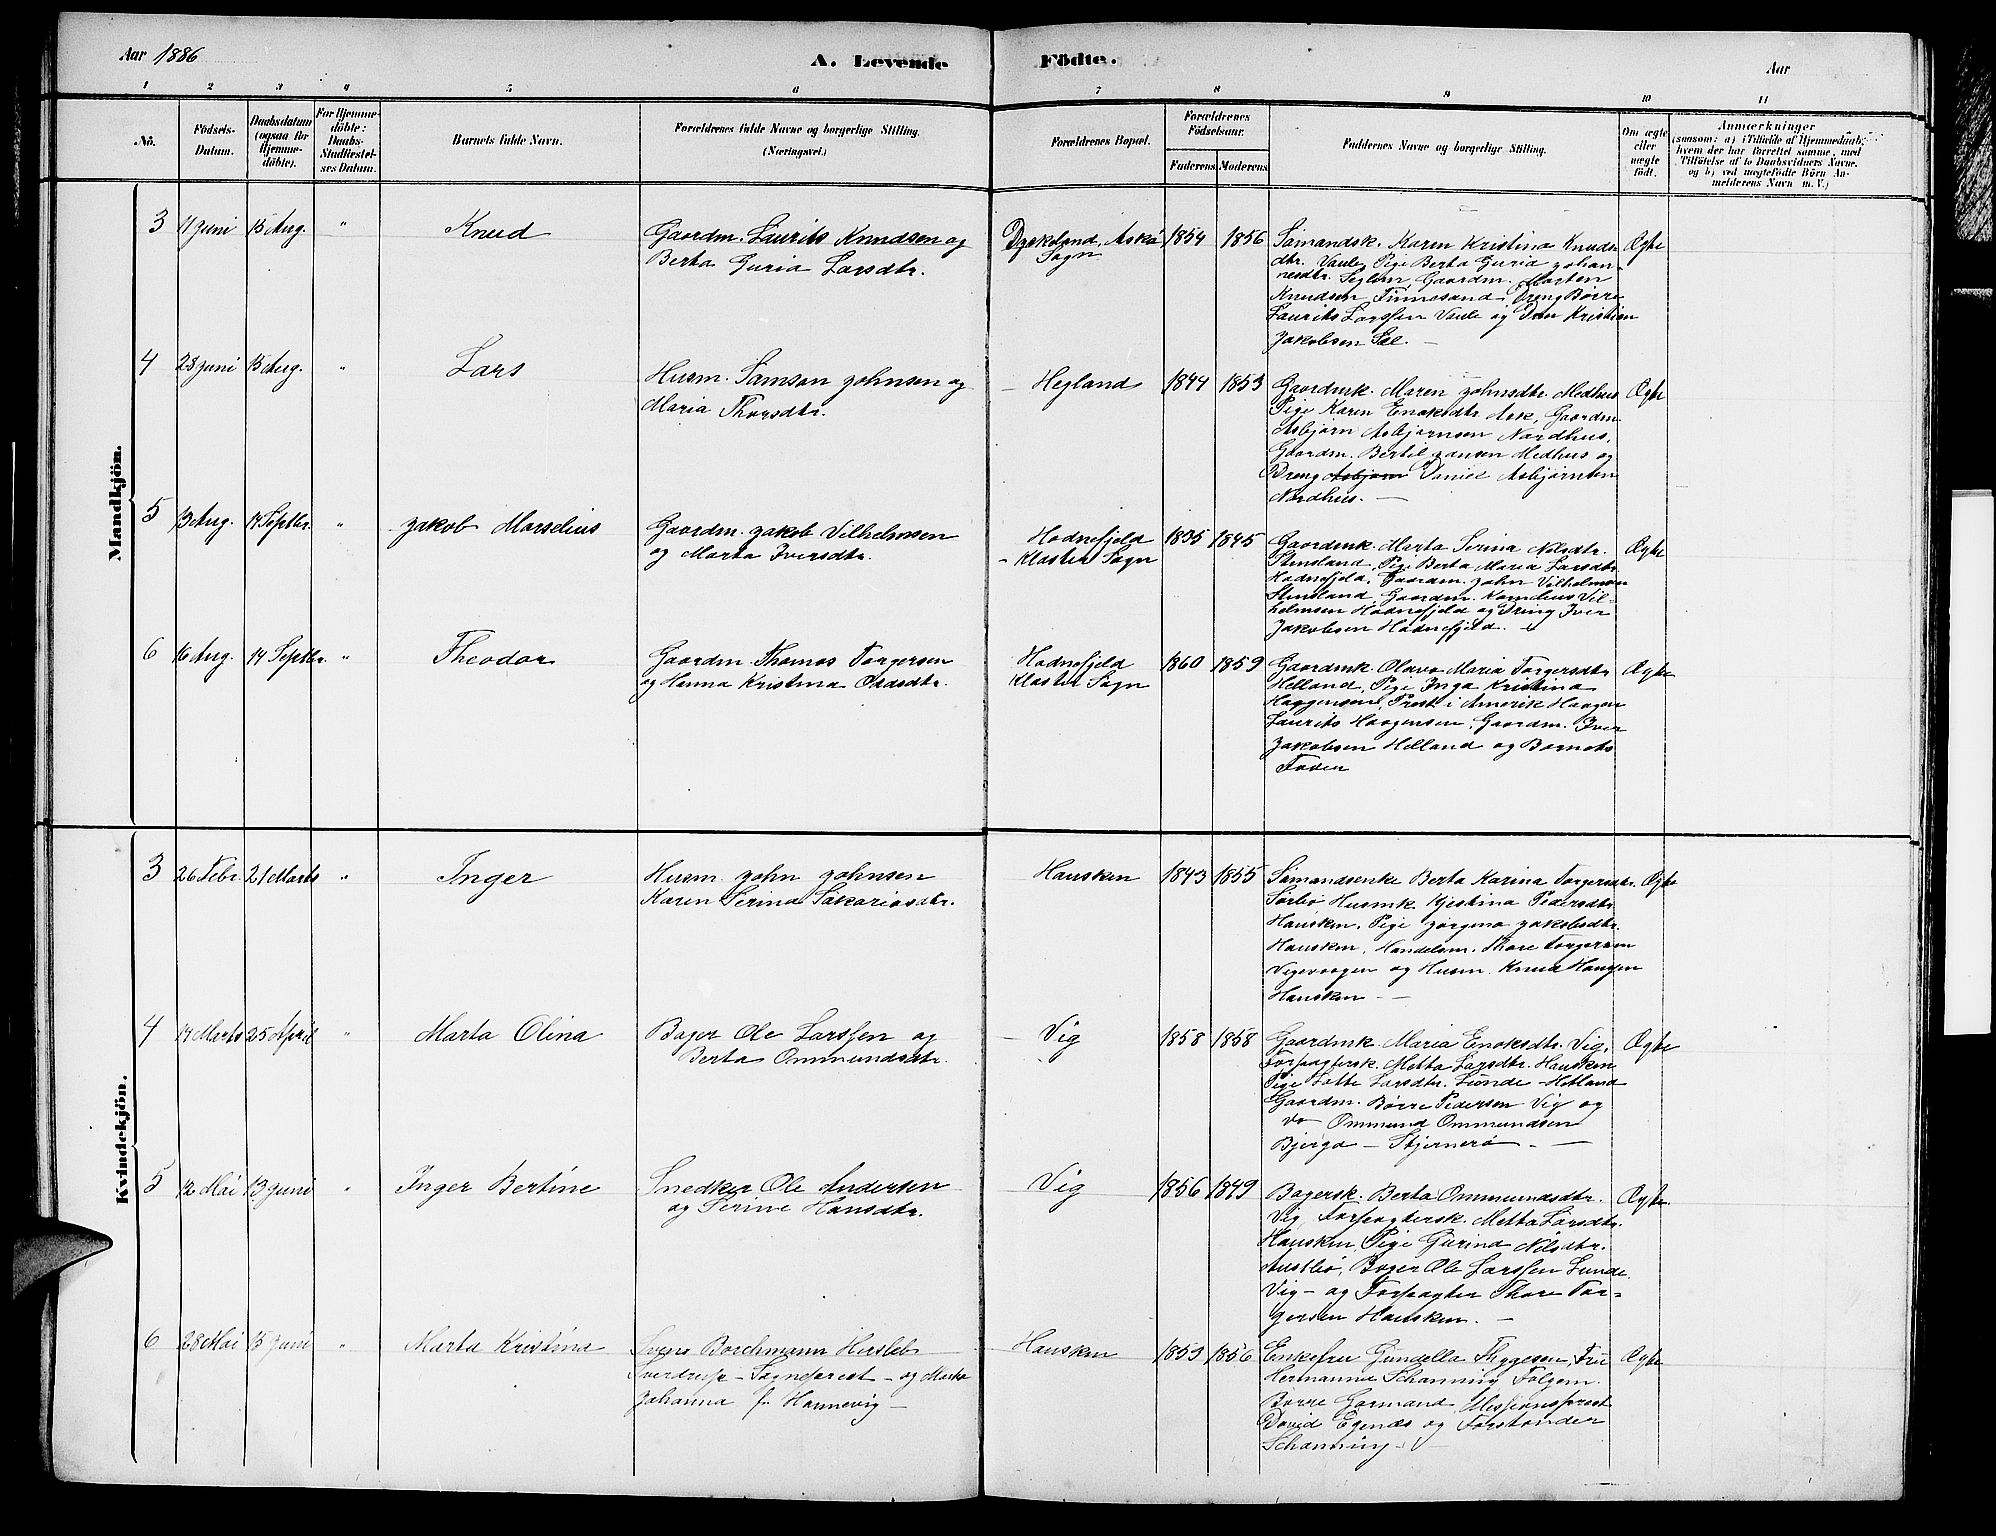 Aar 1886
A. Levende
Födte.
Aar
1 2 3 4 5 6 7 8 9 10 11
No.
Födsels-
Datum.
Daabsdatum
(ogsaa for
Hjemme-
döbte).
For Hjemme-
döbte:
Daabs-
Stadfæstel-
ses Datum.
Barnets fulde Navn.
Forældrenes fulde Navne og borgerlige Stilling.
(Næringsvei.)
Forældrenes Bopæl.
Forældrenes
Födselsaar.
Faderens. Moderens.
Faddernes Navne og borgerlige Stilling.
Om ægte
eller
uægte
födt.
Anmærkninger
(saasom: a) i Tilfælde af Hjemmedaab,
hvem der har forrettet samme, med
Tilföielse af to Daabsvidners Navne,
og b) ved uægtefödte Börn An-
melderens Navn m. V.)
Mandkjön.
3 11 Juni 15 Aug. " Knud
Gaardm. Laurits Knudsen og
Berta Guria Larsdtr.
Dysjeland, Askø
Sogn
1854 1856
Sømandsk. Karen Kristina Knuds
dtr. Vaule, Pige Berta Guria Johan-
nesdtr. Seglem, Gaardm. Morten
Knudsen Finnesand, Dreng Børre
Laurits Larssen Vaule og Dr. Kristian
Jakobsen Sel. —
Ægte
4 28 Juni 15 Aug. " Lars
Husm. Samson Johnsen og
Maria Thorsdtr.
— Hegland 1844 1853
Gaardmk. Maren Johnsdtr. Medhus
Pige Karen Enoksdtr. Ask, Gaardm.
Asbjørn Asbjørnsen Nordhus,
Gaardm. Bertil Hansen Medhus og
Dreng Asbjørn Daniel Asbjørnsen
Nordhus. —
Ægte
5 13 Aug. 14 Septbr. " Jakob Marselius
Gaardm. Jakob Vilhelmsen
og Marta Iversdtr.
Hodnefjeld
— Kloster Sogn
1835 1845
Gaardmk. Marta Serina Nilsdtr.
Stensland, Pige Berta Maria Larsdtr.
Hodnefjeld, Gaardm. John Vilhelmsen
Stensland, Gaardm. Kornelius Vil-
helmsen Hodnefjeld og Dreng Iver
Jakobsen Hodnefjeld. —
Ægte
6 16 Aug. 14 Septbr. " Theodor
Gaardm. Thomas Torgersen
og Hanna Kristina Olasdtr.
Hodnefjeld
Kloster Sogn
1860 1859
Gaardmk. Olava Maria Torgersdtr
Helland, Pige Inga Kristina
Haagensen, Prest i Amerik Haagen
Laurits Haagensen, Gaardm. Iver
Jakobsen Helland og Barnets
Fader
Ægte
Kvindekjön.
3 26 Febr. 21 Marts " Inger
Husm. John Johnsen
Karen Serina Sakariasdtr.
Hausken 1843 1855
Sømandsenke Berta Karina Torgersdtr.
Sørbø Husmk. Kjestina Pedersdtr.
Hausken, Pige Jørgina Jakobsdtr.
Hausken, Handelsm. Thore Torgersen
Vigevaagen og Husm. Knud Haugen
Hausken —
Ægte
4 14 Marts 25 April " Marta Olina
Bager Ole Larssen og
Berta Ommundsdtr.
— Vig 1858 1858
Gaardmk. Maria Enoksdtr. Vig,
Forpagtersk. Metta Larsdtr. Hausken
Pige Lotte Larsdtr. Lunde - Hetland
Gaardm. Børre Pedersen Vig og
do Ommund Ommundsen
Bjerga — Stjernerø —
Ægte
5 12 Mai 13 Juni " Inger Bertine
Snedker Ole Andersen
og Serine Hansdtr.
— Vig 1856 1849
Bagersk. Berta Ommundsdtr.
Vig, Forpagtersk. Metta Larsdtr.
Hausken, Pige Gurina Nilsdtr.
Austbø, Bager Ole Larssen Lunde
Vig — og Forpagter Thore Tor-
gersen Hausken. —
Ægte.
6 28 Mai 13 Juni " Marta Kristina
Svens Borchmann Hersleb
Sverdrup — Sogneprest — og Marta
Johanna f. Hannevig —
Hausken 1853 1856
Enkefru Gundella Thygesen, Frú
Hermanna Schanning Folgern
Børre Garmand, Missionsprest
David Egenæs og Forstander
Schanning —
Ægte